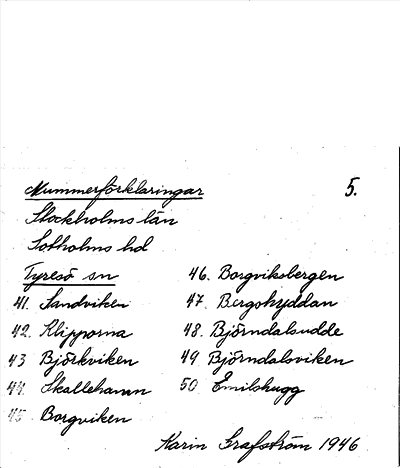 Nummerförklaringar 5.
Stockholms län
Sotholms hd
Tyresö sn
41. Sandviken
42. Klipporna
43 Björkviken
44. Skallehamn
45 Borgviken
46. Borgviksbergen
47. Bergshyddan
48. Björndalsudde
49 Björndalsviken
50 Emilshugg
Karin Grafström 1946